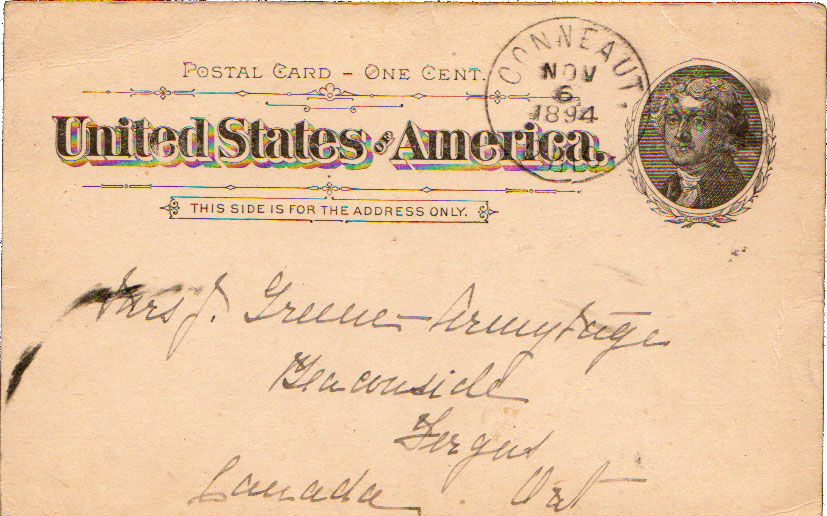 POSTAL CARD – ONE CENT.
CONNEAUT,
NOV
6
1894
United States OF America.
THIS SIDE IS FOR THE ADDRESS ONLY.
Mrs J. Greene-Armytage
Beaconside
Fergus
Canada Ont